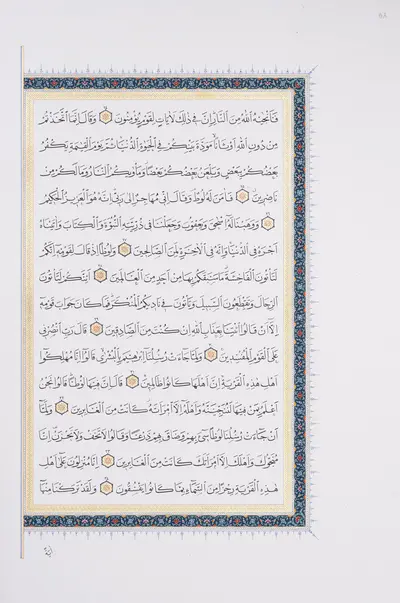 فَأَنْجٰيهُ اللّٰهُ مِنَ النَّارِ اِنَّ فِي ذٰلِكَ لَاٰيَاتٍ لِقَوْمٍ يُؤْمِنُونَ ۝ وَقَالَ اِنَّمَا اتَّخَذْتُمْ
مِنْ دُونِ اللّٰهِ اَوْثَانًا مَوَدَّةَ بَيْنِكُمْ فِي الْحَيٰوةِ الدُّنْيَا ثُمَّ يَوْمَ الْقِيٰمَةِ يَكْفُرُ
بَعْضُكُمْ بِبَعْضٍ وَيَلْعَنُ بَعْضُكُمْ بَعْضًا وَمَأْوٰيكُمُ النَّارُ وَمَا لَكُمْ مِنْ
نَاصِرِينَ ۝ فَاٰمَنَ لَهُ لُوطٌ وَقَالَ اِنِّي مُهَاجِرٌ اِلٰى رَبِّي اِنَّهُ هُوَ الْعَزِيزُ الْحَكِيمُ
۝ وَوَهَبْنَا لَهُ اِسْحٰقَ وَيَعْقُوبَ وَجَعَلْنَا فِي ذُرِّيَّتِهِ النُّبُوَّةَ وَالْكِتَابَ وَاٰتَيْنَاهُ
اَجْرَهُ فِي الدُّنْيَا وَاِنَّهُ فِي الْاٰخِرَةِ لَمِنَ الصَّالِحِينَ ۝ وَلُوطًا اِذْ قَالَ لِقَوْمِهِ اِنَّكُمْ
لَتَأْتُونَ الْفَاحِشَةَ مَا سَبَقَكُمْ بِهَا مِنْ اَحَدٍ مِنَ الْعَالَمِينَ ۝ اَئِنَّكُمْ لَتَأْتُونَ
الرِّجَالَ وَتَقْطَعُونَ السَّبِيلَ وَتَأْتُونَ فِي نَادِيكُمُ الْمُنْكَرَ فَمَا كَانَ جَوَابَ قَوْمِهِ
اِلَّا اَنْ قَالُوا ائْتِنَا بِعَذَابِ اللّٰهِ اِنْ كُنْتَ مِنَ الصَّادِقِينَ ۝ قَالَ رَبِّ انْصُرْنِي
عَلَى الْقَوْمِ الْمُفْسِدِينَ ۝ وَلَمَّا جَاءَتْ رُسُلُنَا اِبْرٰهِيمَ بِالْبُشْرٰى قَالُوا اِنَّا مُهْلِكُوا
اَهْلِ هٰذِهِ الْقَرْيَةِ اِنَّ اَهْلَهَا كَانُوا ظَالِمِينَ ۝ قَالَ اِنَّ فِيهَا لُوطًا قَالُوا نَحْنُ
اَعْلَمُ بِمَنْ فِيهَا لَنُنَجِّيَنَّهُ وَاَهْلَهُ اِلَّا امْرَاَتَهُ كَانَتْ مِنَ الْغَابِرِينَ ۝ وَلَمَّا
اَنْ جَاءَتْ رُسُلُنَا لُوطًا سِيءَ بِهِمْ وَضَاقَ بِهِمْ ذَرْعًا وَقَالُوا لَا تَخَفْ وَلَا تَحْزَنْ اِنَّا
مُنَجُّوكَ وَاَهْلَكَ اِلَّا امْرَاَتَكَ كَانَتْ مِنَ الْغَابِرِينَ ۝ اِنَّا مُنْزِلُونَ عَلٰى اَهْلِ
هٰذِهِ الْقَرْيَةِ رِجْزًا مِنَ السَّمَاءِ بِمَا كَانُوا يَفْسُقُونَ ۝ وَلَقَدْ تَرَكْنَا مِنْهَا
اٰيَةً